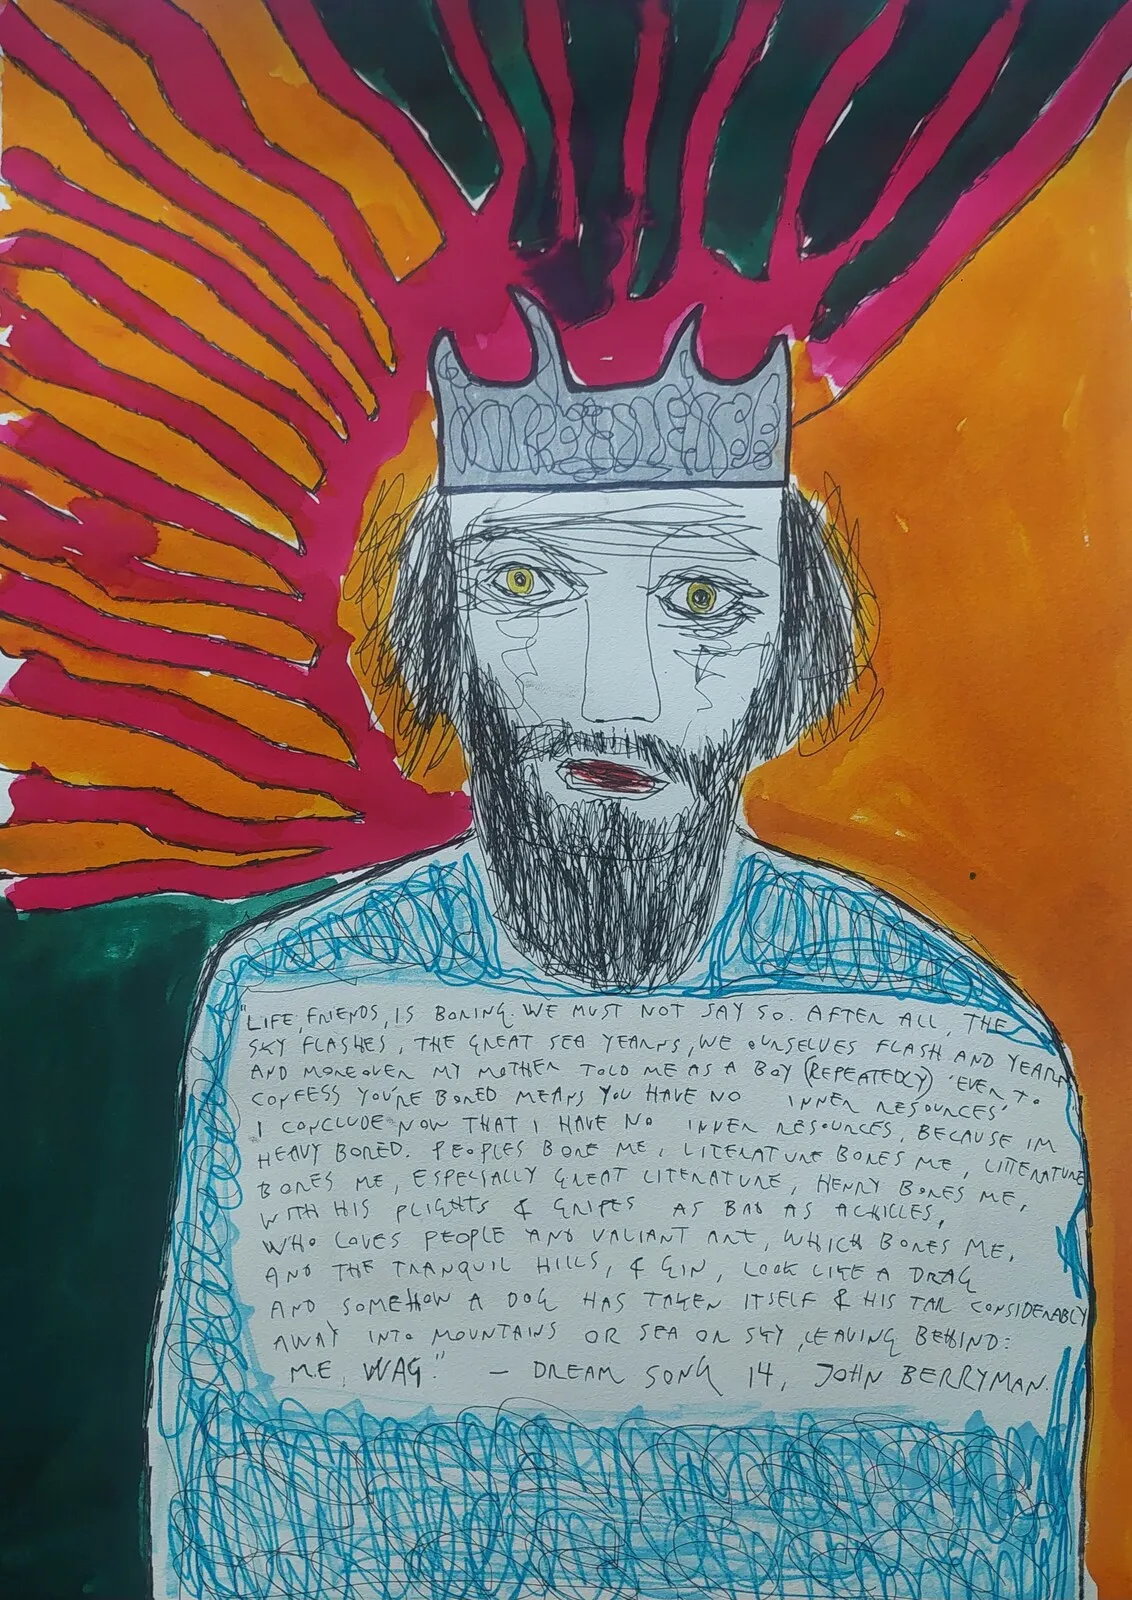 "LIFE, FRIENDS, IS BORING. WE MUST NOT SAY SO. AFTER ALL, THE
SKY FLASHES, THE GREAT SEA YEARNS, WE OURSELVES FLASH AND YEARN
AND MOREOVER MY MOTHER TOLD ME AS A BOY (REPEATEDLY) 'EVER TO
CONFESS YOU'RE BORED MEANS YOU HAVE NO INNER RESOURCES'
I CONCLUDE NOW THAT I HAVE NO INNER RESOURCES, BECAUSE IM
HEAVY BORED. PEOPLES BORE ME, LITERATURE BORES ME, LITERATURE
BORES ME, ESPECIALLY GREAT LITERATURE, HENRY BORES ME,
WITH HIS PLIGHTS & GRIPES AS BAD AS ACHILLES,
WHO LOVES PEOPLE AND VALIANT ART, WHICH BORES ME,
AND THE TRANQUIL HILLS, & GIN, LOOK LIKE A DRAG
AND SOMEHOW A DOG HAS TAKEN ITSELF & HIS TAIL CONSIDERABLY
AWAY INTO MOUNTAINS OR SEA OR SKY, LEAVING BEHIND:
ME, WAG." – DREAM SONG 14, JOHN BERRYMAN.